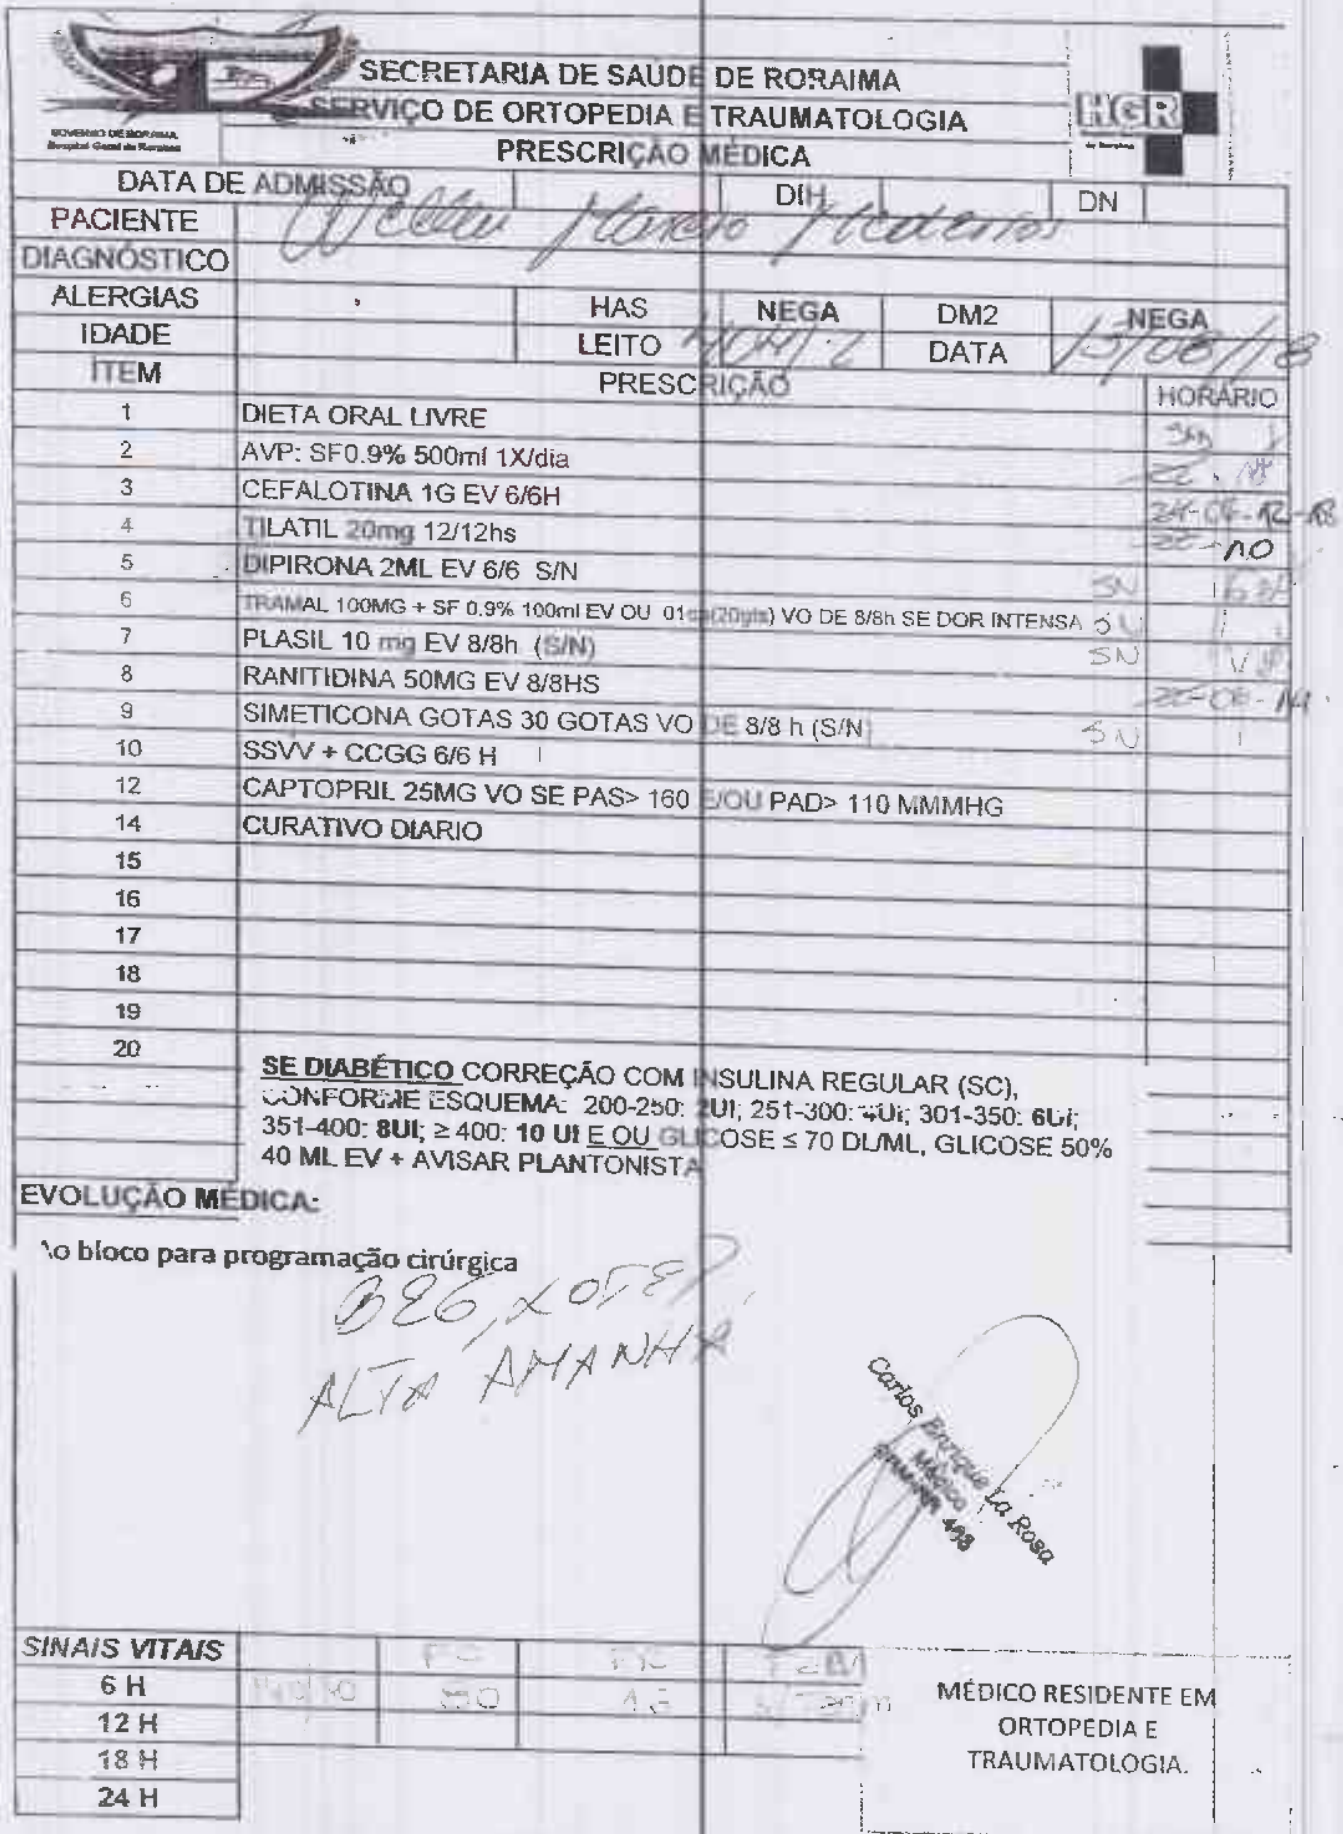 SECRETARIA DE SAUDE DE RORAIMA
SERVIÇO DE ORTOPEDIA E TRAUMATOLOGIA
PRESCRIÇÃO MÉDICA
GOVERNO DE RORAIMA
Hospital Geral de Roraima
HGR
de Roraima
DATA DE ADMISSÃO DIH DN
PACIENTE
DIAGNÓSTICO
ALERGIAS HAS NEGA DM2 NEGA
IDADE LEITO DATA 15/08/18
ITEM PRESCRIÇÃO HORÁRIO
1 DIETA ORAL LIVRE
2 AVP: SF0.9% 500ml 1X/dia
3 CEFALOTINA 1G EV 6/6H
4 TILATIL 20mg 12/12hs
5 DIPIRONA 2ML EV 6/6 S/N SN
6 TRAMAL 100MG + SF 0.9% 100ml EV OU VO DE 8/8h SE DOR INTENSA
7 PLASIL 10 mg EV 8/8h (S/N) SN
8 RANITIDINA 50MG EV 8/8HS
9 SIMETICONA GOTAS 30 GOTAS VO DE 8/8 h (S/N) SN
10 SSVV + CCGG 6/6 H
12 CAPTOPRIL 25MG VO SE PAS> 160 E/OU PAD> 110 MMMHG
14 CURATIVO DIARIO
15
16
17
18
19
20
SE DIABÉTICO CORREÇÃO COM INSULINA REGULAR (SC),
CONFORME ESQUEMA: 200-250: 2UI; 251-300: 4UI; 301-350: 6UI;
351-400: 8UI; ≥ 400: 10 UI E OU GLICOSE ≤ 70 DL/ML, GLICOSE 50%
40 ML EV + AVISAR PLANTONISTA
EVOLUÇÃO MÉDICA:
\o bloco para programação cirúrgica
BEG, LOTE
ALTA AMANHÃ
Carlos Enrique La Rosa
Médico
SINAIS VITAIS
6 H
12 H
18 H
24 H
MÉDICO RESIDENTE EM
ORTOPEDIA E
TRAUMATOLOGIA.